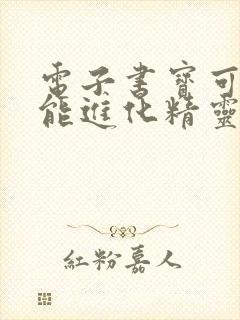 電子書寶可
能進化精靈
紅粉嘉人